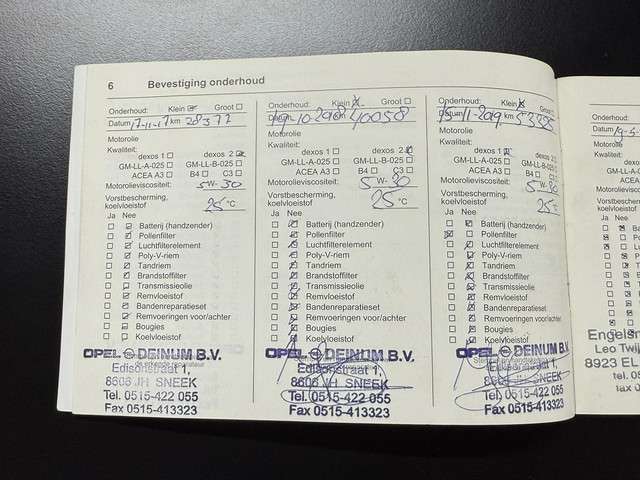 6 Bevestiging onderhoud
Onderhoud: Klein Groot
Datum 17-11-17 km 28377
Motorolie
Kwaliteit:
dexos 1 dexos 2
GM-LL-A-025 GM-LL-B-025
ACEA A3 B4 C3
Motorolieviscositeit: 5W-30
Vorstbescherming,
koelvloeistof 25 °C
Ja Nee
Batterij (handzender)
Pollenfilter
Luchtfilterelement
Poly-V-riem
Tandriem
Brandstoffilter
Transmissieolie
Remvloeistof
Bandenreparatieset
Remvoeringen voor/achter
Bougies
Koelvloeistof
OPEL DEINUM B.V.
Edisonstraat 1,
8606 JH SNEEK
Tel. 0515-422 055
Fax 0515-413323
Onderhoud: Klein Groot
Datum 19-10-2018 km 40058
Motorolie
Kwaliteit:
dexos 1 dexos 2
GM-LL-A-025 GM-LL-B-025
ACEA A3 B4 C3
Motorolieviscositeit: 5W-30
Vorstbescherming,
koelvloeistof 25 °C
Ja Nee
Batterij (handzender)
Pollenfilter
Luchtfilterelement
Poly-V-riem
Tandriem
Brandstoffilter
Transmissieolie
Remvloeistof
Bandenreparatieset
Remvoeringen voor/achter
Bougies
Koelvloeistof
OPEL DEINUM B.V.
Edisonstraat 1,
8606 JH SNEEK
Tel. 0515-422 055
Fax 0515-413323
Onderhoud: Klein Groot
Datum 15-11-2019 km
Motorolie
Kwaliteit:
dexos 1 dexos 2
GM-LL-A-025 GM-LL-B-025
ACEA A3 B4 C3
Motorolieviscositeit: 5W-30
Vorstbescherming,
koelvloeistof 25 °C
Ja Nee
Batterij (handzender)
Pollenfilter
Luchtfilterelement
Poly-V-riem
Tandriem
Brandstoffilter
Transmissieolie
Remvloeistof
Bandenreparatieset
Remvoeringen voor/achter
Bougies
Koelvloeistof
OPEL DEINUM B.V.
Edisonstraat 1,
8606 JH SNEEK
Tel. 0515-422 055
Fax 0515-413323
Onderhoud:
Datum
Motorolie
Kwaliteit:
GM-LL
AC
Motorolie
Vorstbes
koelvloei
Ja Nee
Leo Twij
8923 EL
tel. 05